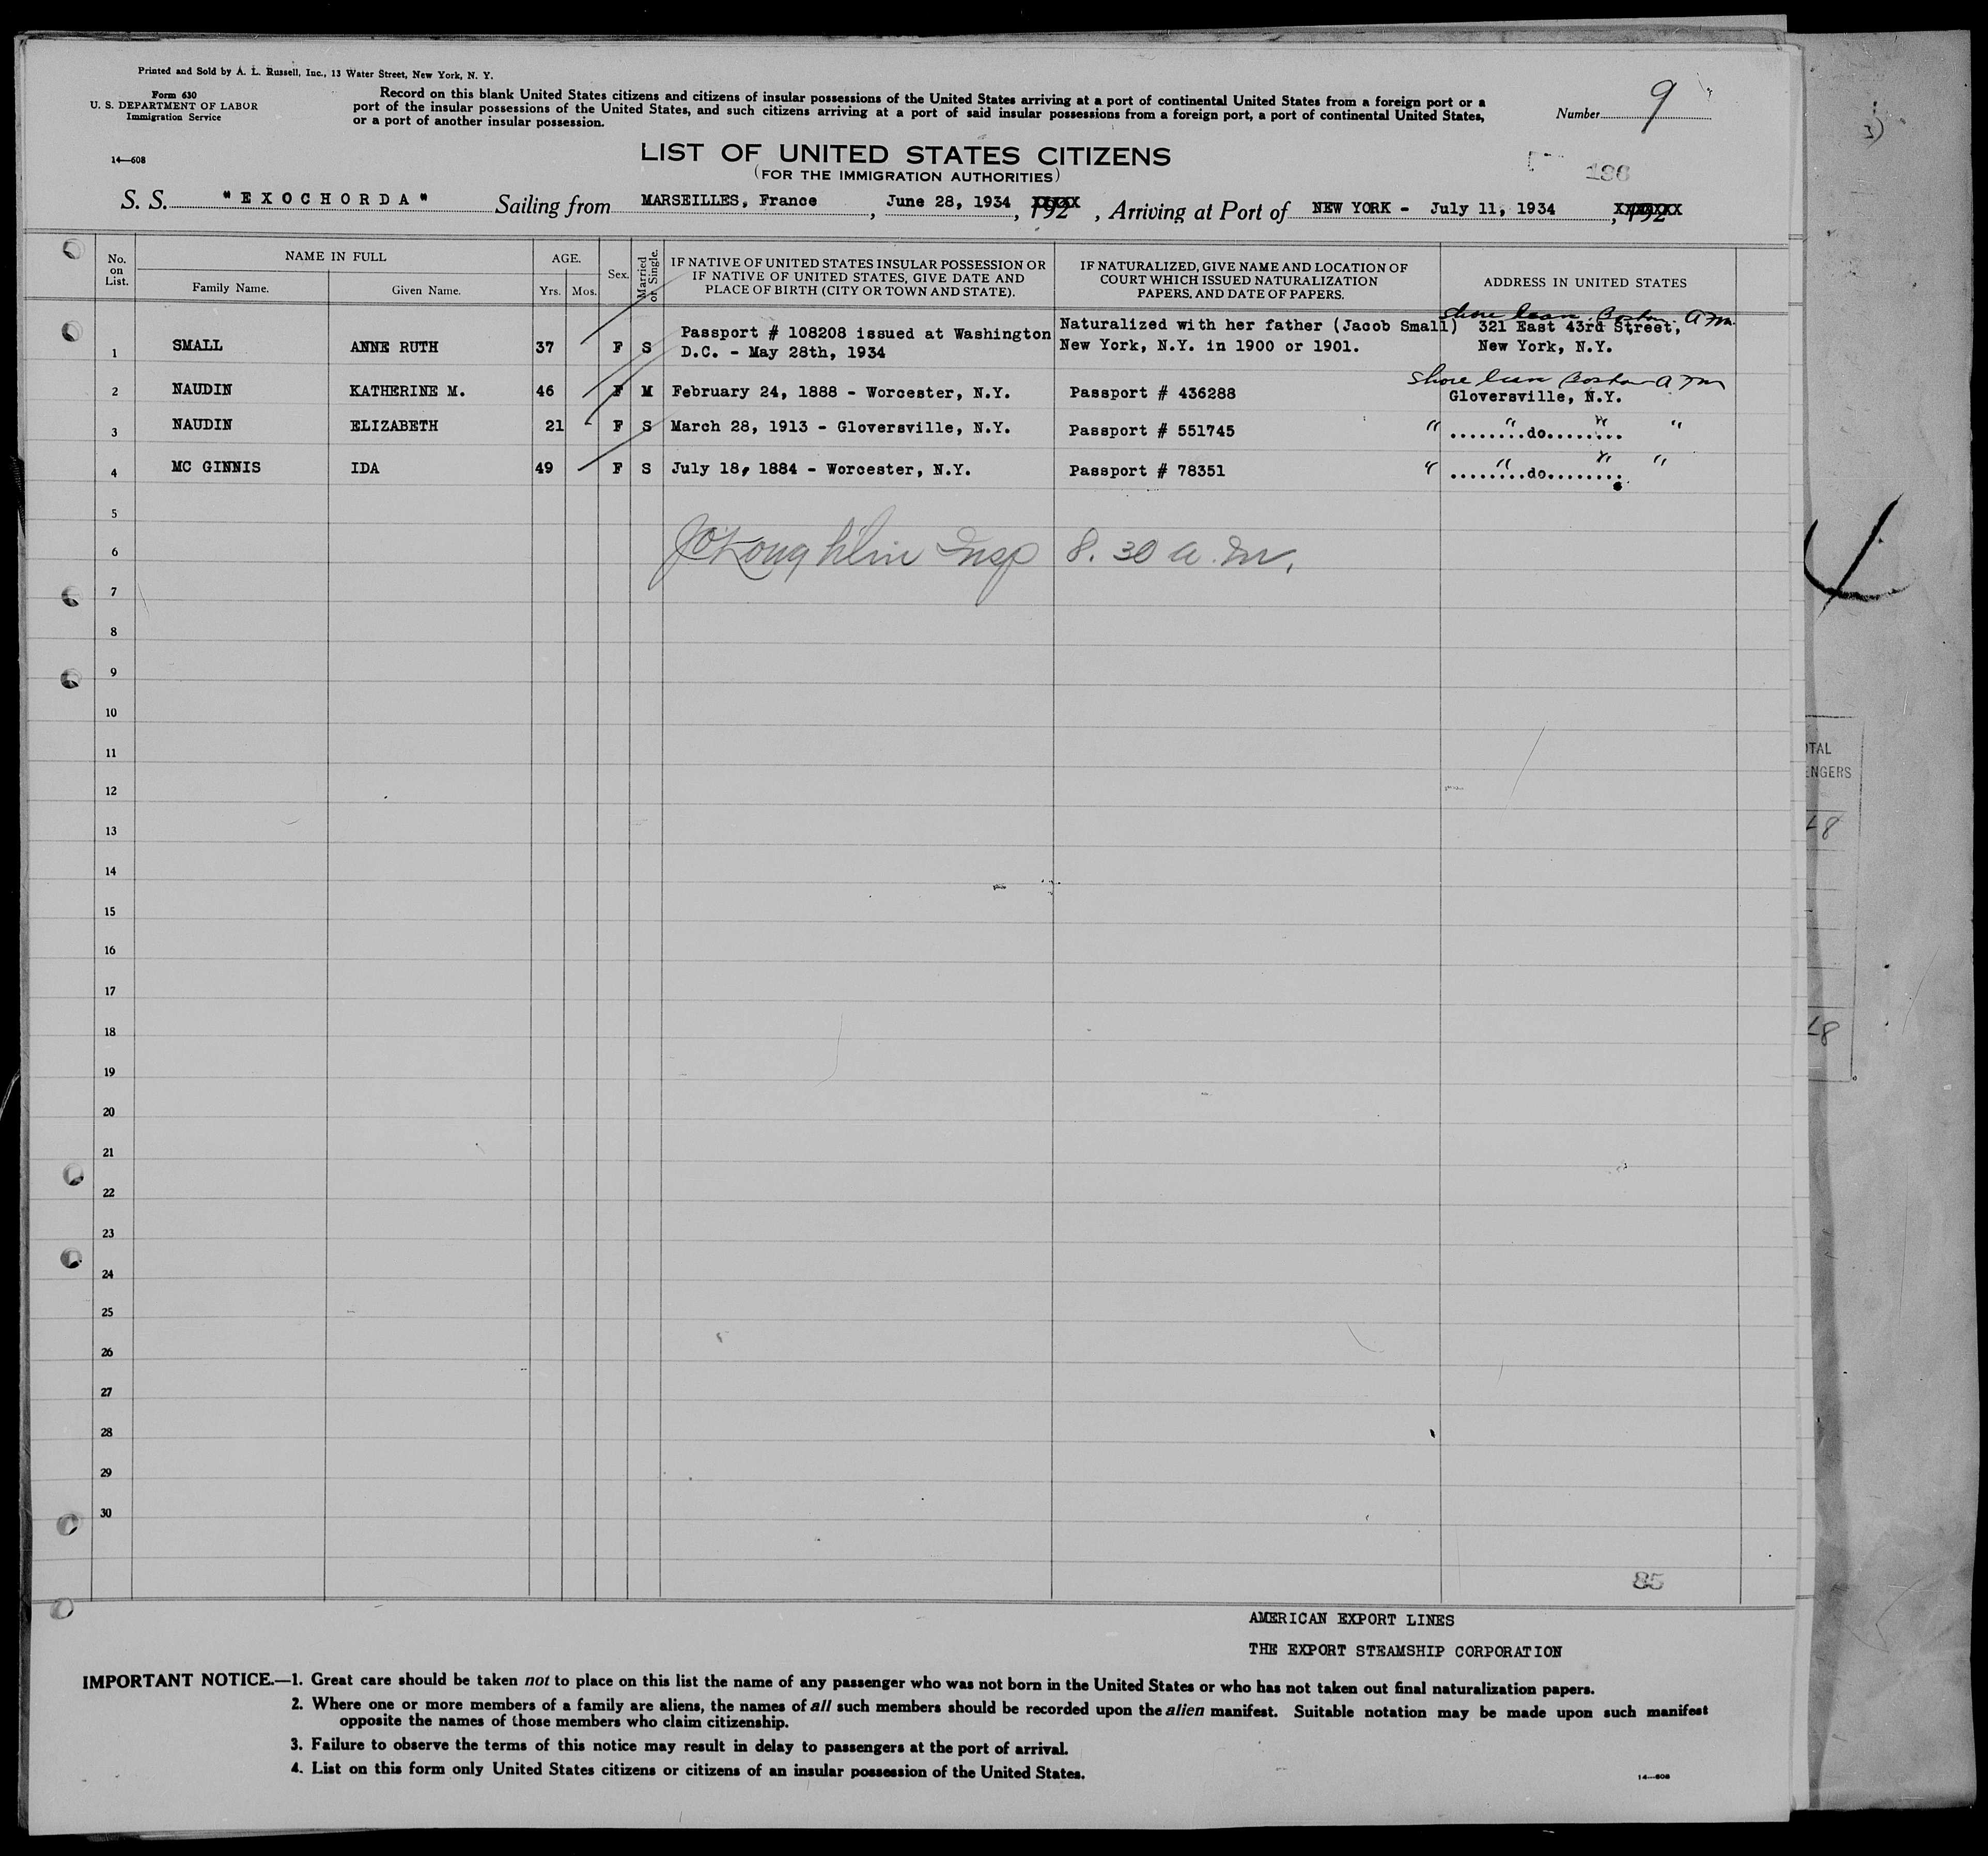 Printed and Sold by A. L. Russell, Inc., 13 Water Street, New York, N. Y.
Form 630
U. S. DEPARTMENT OF LABOR
Immigration Service
14—608
Record on this blank United States citizens and citizens of insular possessions of the United States arriving at a port of continental United States from a foreign port or a
port of the insular possessions of the United States, and such citizens arriving at a port of said insular possessions from a foreign port, a port of continental United States,
or a port of another insular possession.
Number 9
LIST OF UNITED STATES CITIZENS
(FOR THE IMMIGRATION AUTHORITIES)
186
S. S. "EXOCHORDA" Sailing from MARSEILLES, France, June 28, 1934, 192, Arriving at Port of NEW YORK - July 11, 1934, 192
No. on List.
NAME IN FULL
Family Name. Given Name.
AGE.
Yrs. Mos.
Sex.
Married or Single.
IF NATIVE OF UNITED STATES INSULAR POSSESSION OR
IF NATIVE OF UNITED STATES, GIVE DATE AND
PLACE OF BIRTH (CITY OR TOWN AND STATE).
IF NATURALIZED, GIVE NAME AND LOCATION OF
COURT WHICH ISSUED NATURALIZATION
PAPERS, AND DATE OF PAPERS.
ADDRESS IN UNITED STATES
Boston A M
1 SMALL ANNE RUTH 37 F S Passport # 108208 issued at Washington D.C. - May 28th, 1934 Naturalized with her father (Jacob Small) New York, N.Y. in 1900 or 1901. 321 East 43rd Street, New York, N.Y.
Boston A M
2 NAUDIN KATHERINE M. 46 F M February 24, 1888 - Worcester, N.Y. Passport # 436288 Gloversville, N.Y.
3 NAUDIN ELIZABETH 21 F S March 28, 1913 - Gloversville, N.Y. Passport # 551745 " ........do........ "
4 MC GINNIS IDA 49 F S July 18, 1884 - Worcester, N.Y. Passport # 78351 " ........do........ "
5
6 J O'Loughlin Insp 8. 30 a. m.
7
8
9
10
11
12
13
14
15
16
17
18
19
20
21
22
23
24
25
26
27
28
29
30
85
AMERICAN EXPORT LINES
THE EXPORT STEAMSHIP CORPORATION
IMPORTANT NOTICE.—1. Great care should be taken not to place on this list the name of any passenger who was not born in the United States or who has not taken out final naturalization papers.
2. Where one or more members of a family are aliens, the names of all such members should be recorded upon the alien manifest. Suitable notation may be made upon such manifest
opposite the names of those members who claim citizenship.
3. Failure to observe the terms of this notice may result in delay to passengers at the port of arrival.
4. List on this form only United States citizens or citizens of an insular possession of the United States.
14—608